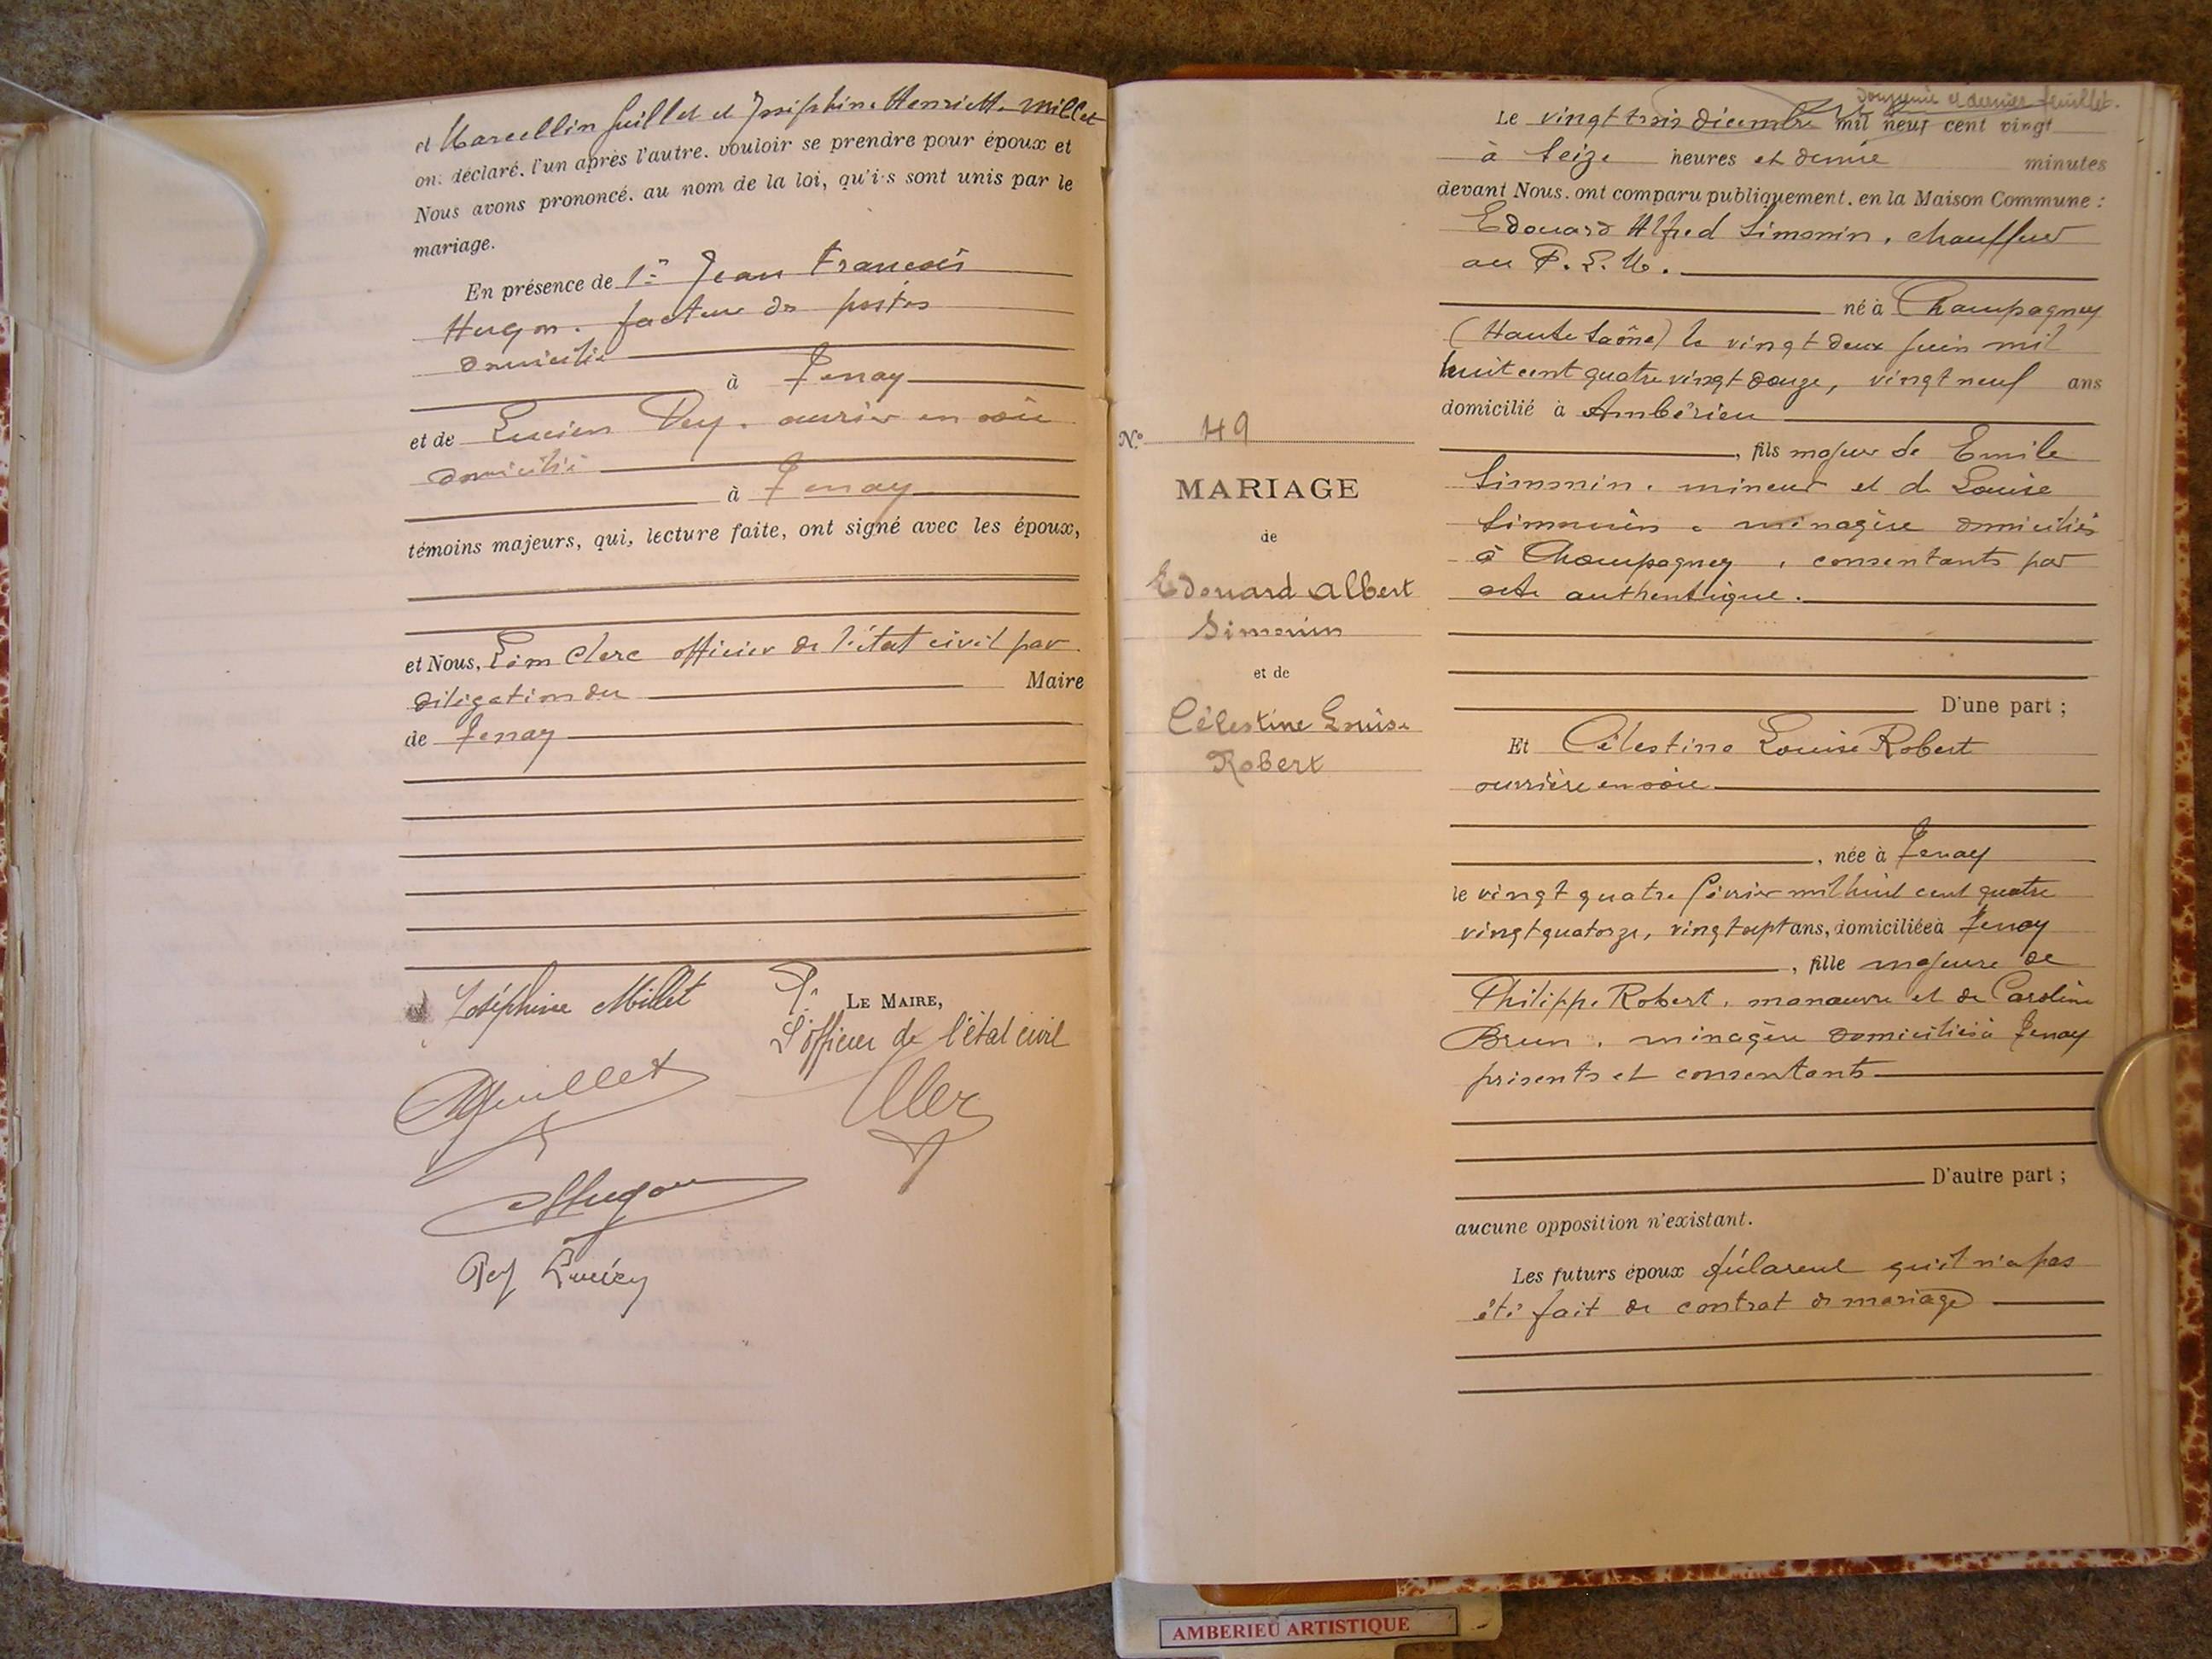 et Marcellin Guillet et Joséphine Henriette Millet
ont déclaré, l'un après l'autre, vouloir se prendre pour époux et
Nous avons prononcé, au nom de la loi, qu'ils sont unis par le
mariage.
En présence de 1° Jean François
Hugon, facteur des postes
domicilié
à Tenay
et de Lucien Pey, ouvrier en soie
domicilié
à Tenay
témoins majeurs, qui, lecture faite, ont signé avec les époux,
et Nous, Léon Clerc officier de l'état civil par
délégation du Maire
de Tenay
Joséphine Millet
P. LE MAIRE,
L'officier de l'état civil
MGuillet
Hugon
Pey Lucien
douzième et dernier feuillet.
Le vingt trois décembre mil neuf cent vingt
à seize heures et demie minutes
devant Nous, ont comparu publiquement, en la Maison Commune :
Edouard Alfred Simonin, chauffeur
au P. L. M.
né à Champagney
(Haute Saône) le vingt deux juin mil
huit cent quatre vingt douze, vingt neuf ans
domicilié à Ambérieu
, fils majeur de Emile
Simonin, mineur et de Louise
Simonin, ménagère domiciliés
à Champagney, consentants par
acte authentique.
N° 49
MARIAGE
de
Edouard Albert
Simonin
et de
Célestine Louise
Robert
D'une part ;
Et Célestine Louise Robert
ouvrière en soie
, née à Tenay
le vingt quatre février mil huit cent quatre
vingt quatorze, vingt sept ans, domiciliée à Tenay
, fille majeure de
Philippe Robert, manœuvre et de Caroline
Brun, ménagère domiciliés à Tenay
présents et consentants
D'autre part ;
aucune opposition n'existant.
Les futurs époux déclarent qu'il n'a pas
été fait de contrat de mariage
AMBERIEU ARTISTIQUE